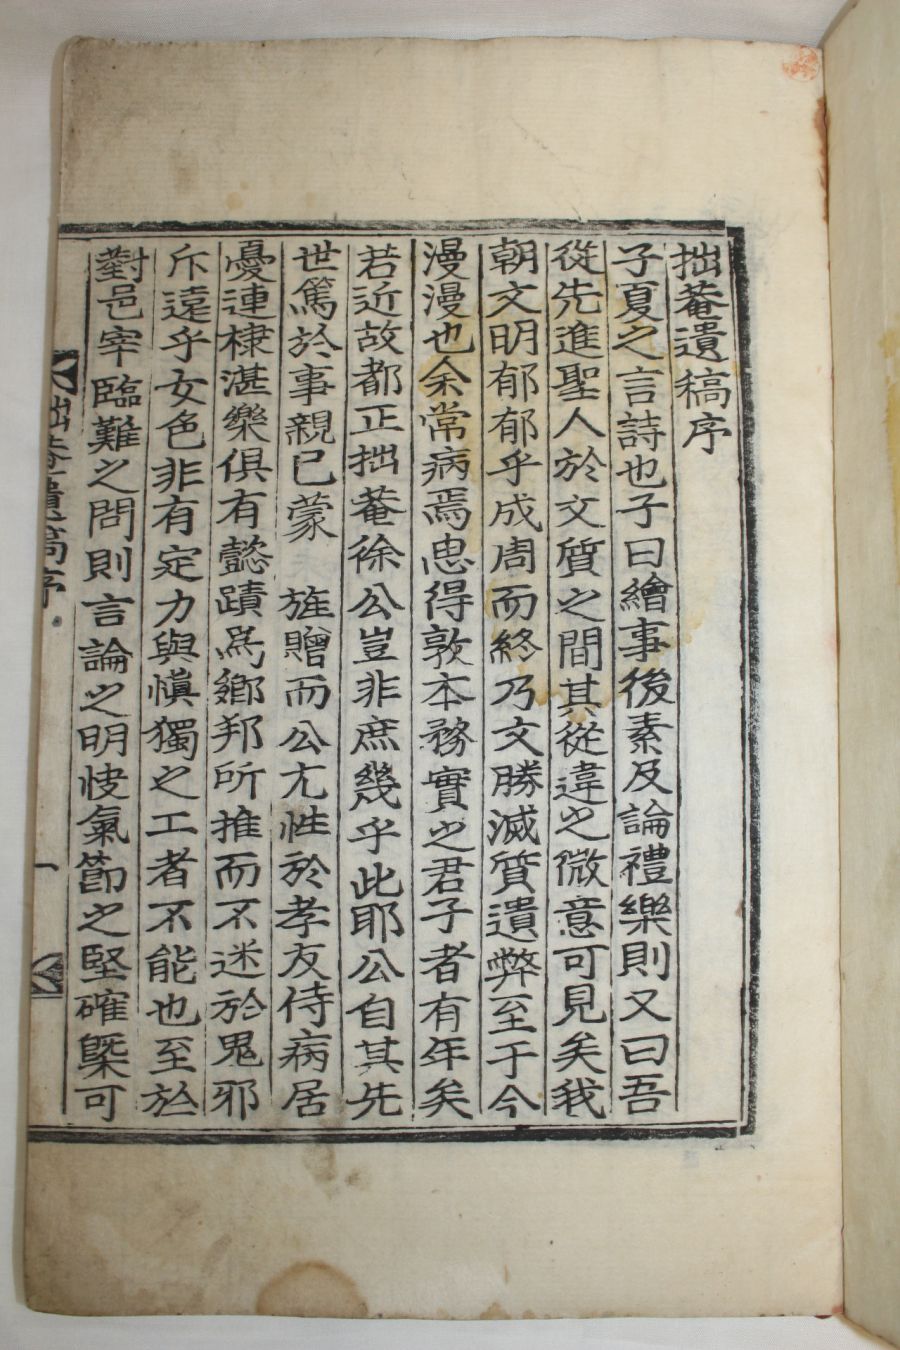 拙菴遺稿序
子夏之言詩也子曰繪事後素及論禮樂則又曰吾
從先進聖人於文質之間其從違之微意可見矣我
朝文明郁郁乎成周而終乃文勝滅質遺弊至于今
漫漫也余常病焉思得敦本務實之君子者有年矣
若近故都正拙菴徐公豈非庶幾乎此耶公自其先
世篤於事親已蒙 旌贈而公尤性於孝友侍病居
憂連棣湛樂俱有懿蹟爲鄕邦所推而不迷於鬼邪
斥遠乎女色非有定力與愼獨之工者不能也至於
對邑宰臨難之問則言論之明快氣節之堅確槩可
拙菴遺稿序
一